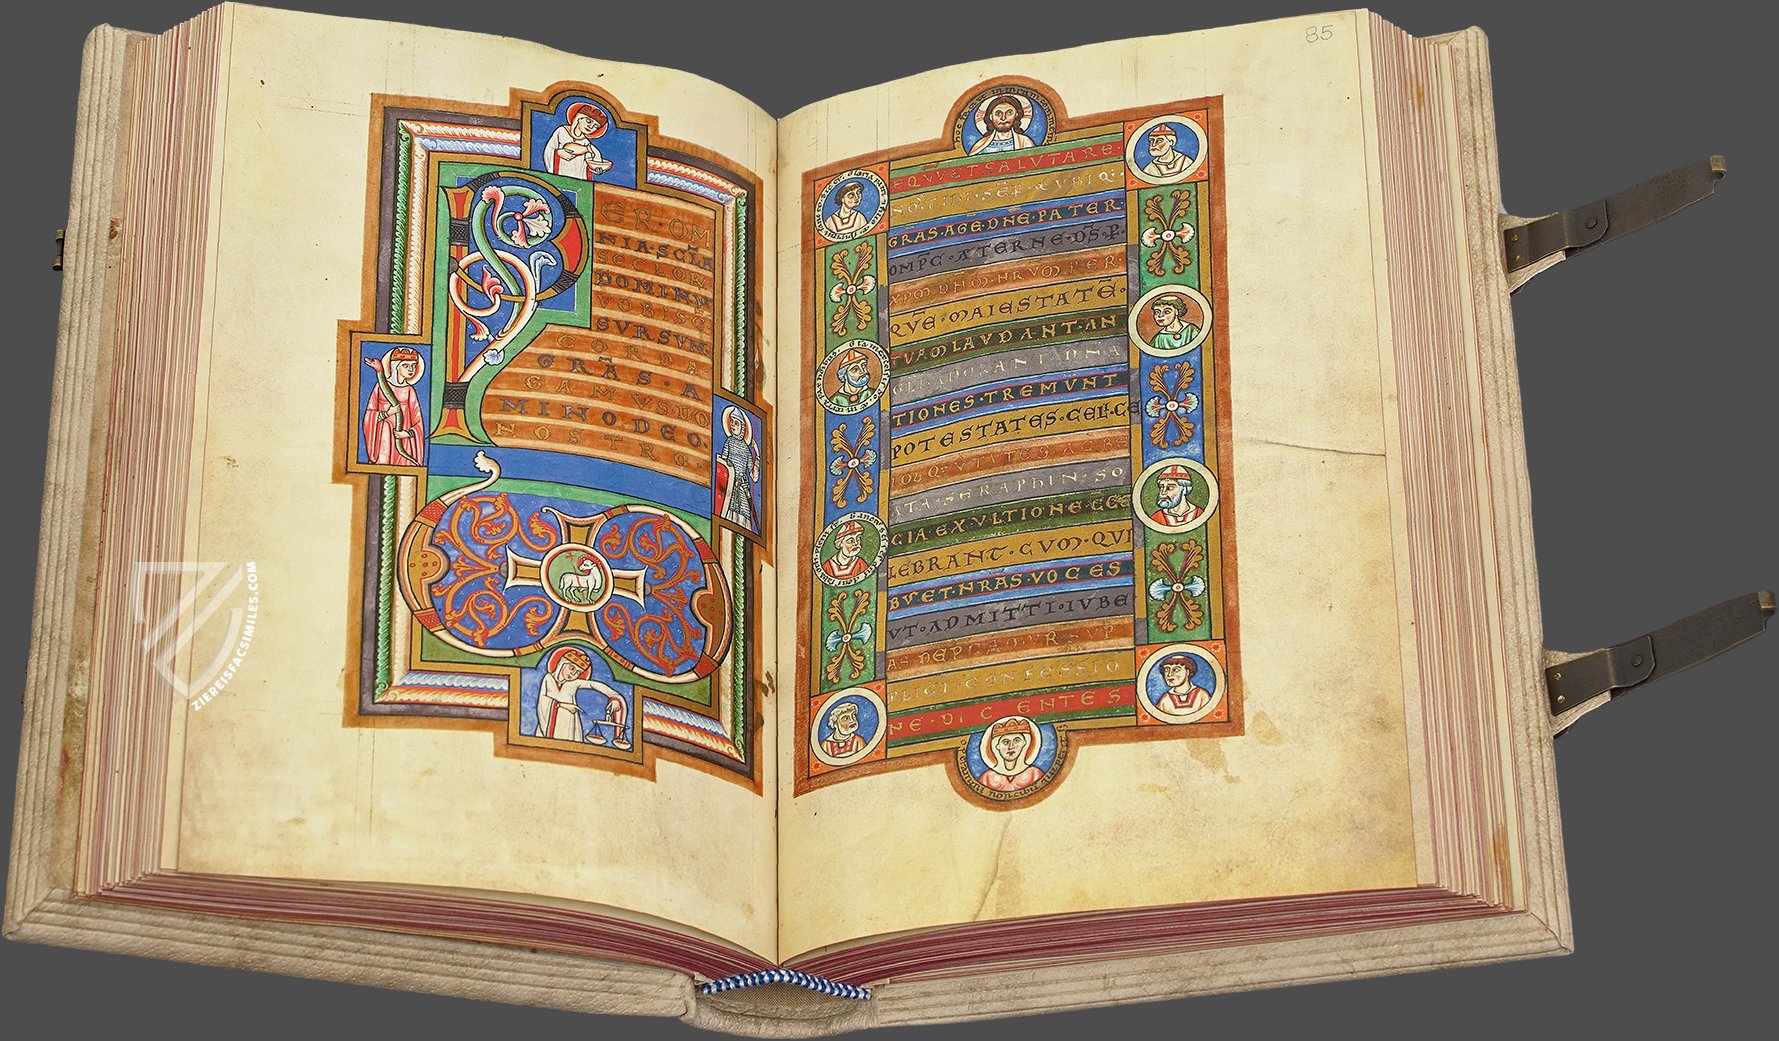 ER·OM
NIA·SCLA
SECLOR
DOMINUS
VOBISC
SVRSVM
CORDA
GRAS·A
GAMVS·DO
MINO DEO·
NOSTRO·
85
EQVVET SALVTARE·
NOS TIBI SEP ET VBIQ·
GRAS·AGE·DNE·PATER·
OMPC·ÆTERNE·DS·P·
XPM·DNM·NRVM·PER
QVE·MAIESTATE·
TVAM LAVDANT·AN
GLI·ADORANT·DNA
TIONES·TREMVNT
POTESTATES·CELI·CE
LOQ·VTVTES·AC BE
ATA·SERAPHIN·SO
CIA·EXVLTIONE·
LEBRANT·CVM·QVI
BVET·NRAS·VOCES
VT·ADMITTI·IVBE
AS DEPCAMVR·SVP
PLICI·CONFESSIO
NE·DICENTES·
ZIEREISFACSIMILES.COM